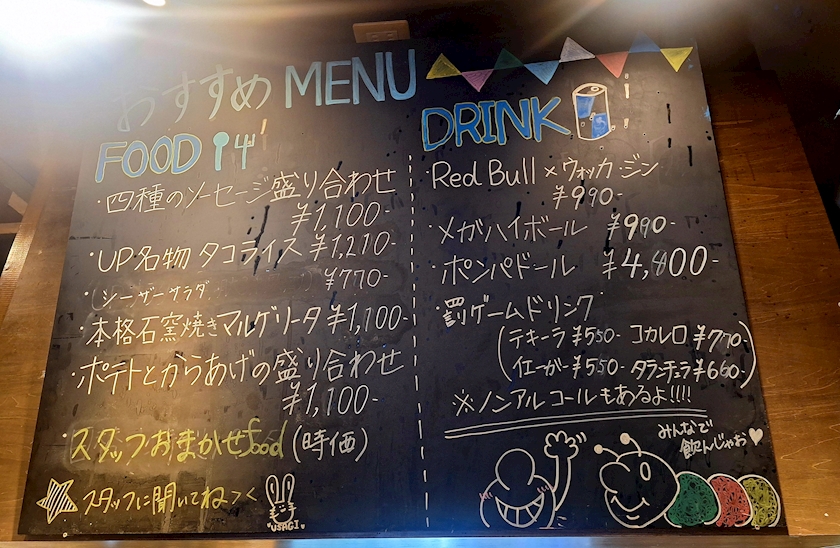 おすすめ MENU
FOOD
・四種のソーセージ盛り合わせ
¥1,100-
・UP名物 タコライス ¥1,210-
・シーザーサラダ ¥770-
・本格石窯焼きマルゲリータ ¥1,100-
・ポテトとからあげの盛り合わせ
¥1,100-
・スタッフおまかせfood (時価)
スタッフに聞いてねっ
USAGI
DRINK
・Red Bull × ウォッカ・ジン
¥990-
・メガハイボール ¥990-
・ポンパドール ¥4,800-
・罰ゲームドリンク
(テキーラ ¥550- コカレロ ¥770-
イエーガー ¥550- タランチュラ ¥660-)
※ノンアルコールもあるよ!!!!
みんなで
飲んじゃお♥